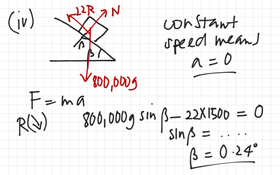 (iv)
22R
N
constant
speed means
a = 0
β
800,000g
F = ma
R(↘) 800,000g sin β - 22X1500 = 0
sin β = ....
β = 0.24°